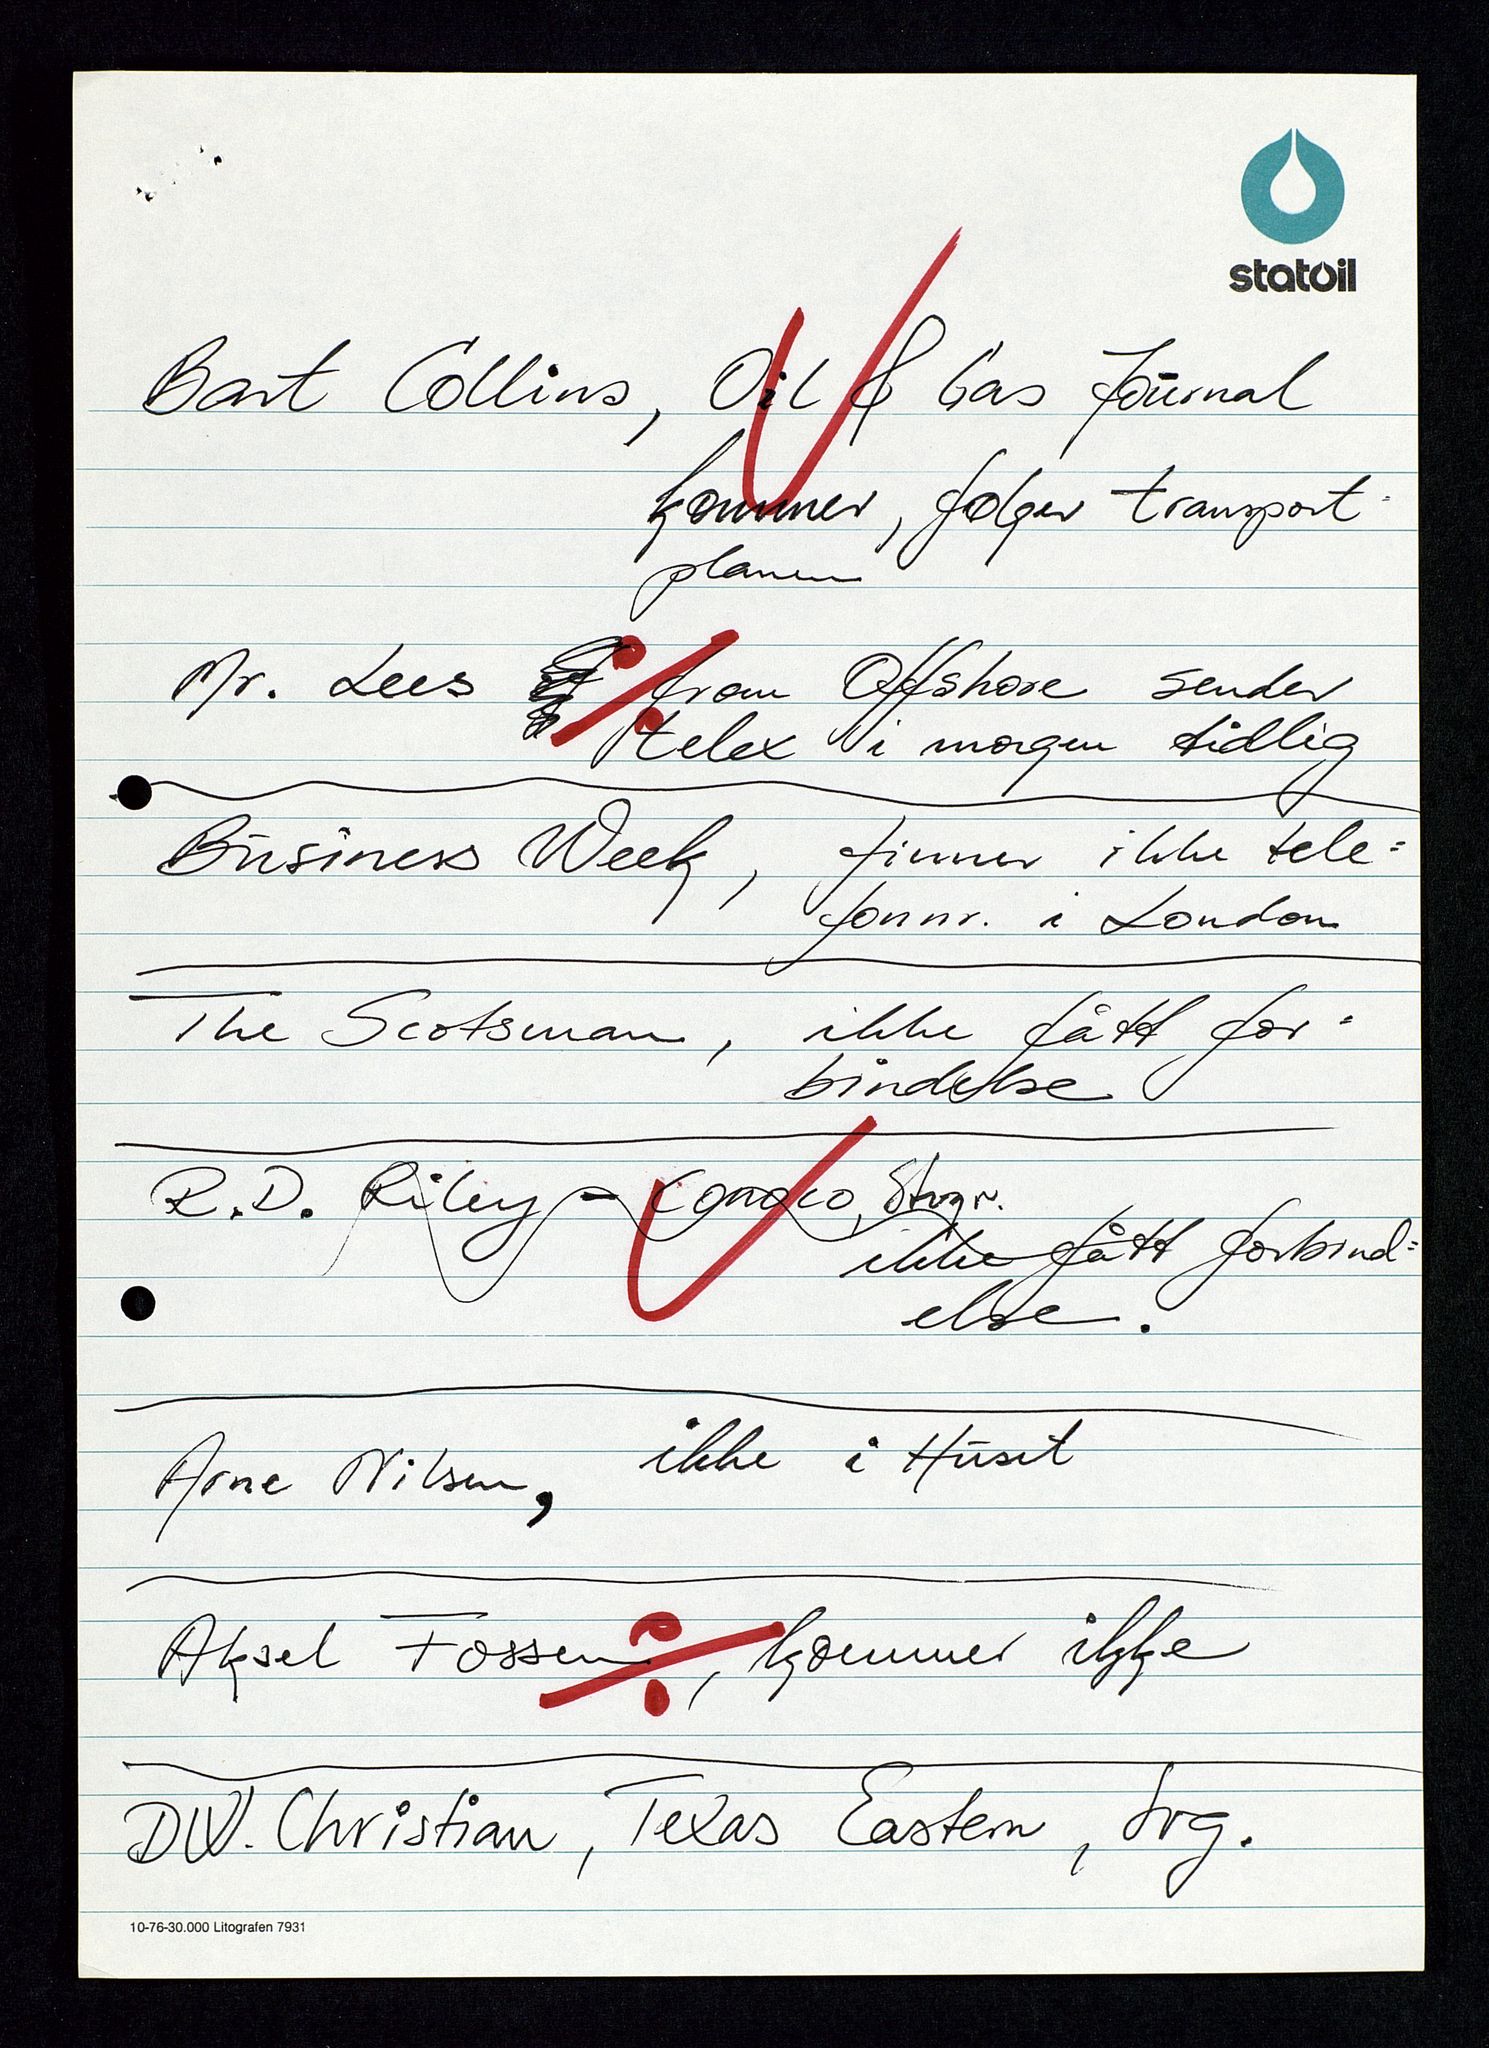 statoil
Bart Collins, Oil & Gas Journal
kommer, følger transport-
planen
Mr. Lees from Offshore sender
telex i morgen tidlig
Business Week, finner ikke tele=
fonnr. i London
The Scotsman, ikke fått for=
bindelse
R.D. Riley - Conoco,
ikke fått forbind=
else.
Arne Nilsen, ikke i Huset
Aksel Fossen, kommer ikke
DW. Christian, Texas Eastern,
10-76-30.000 Litografen 7931